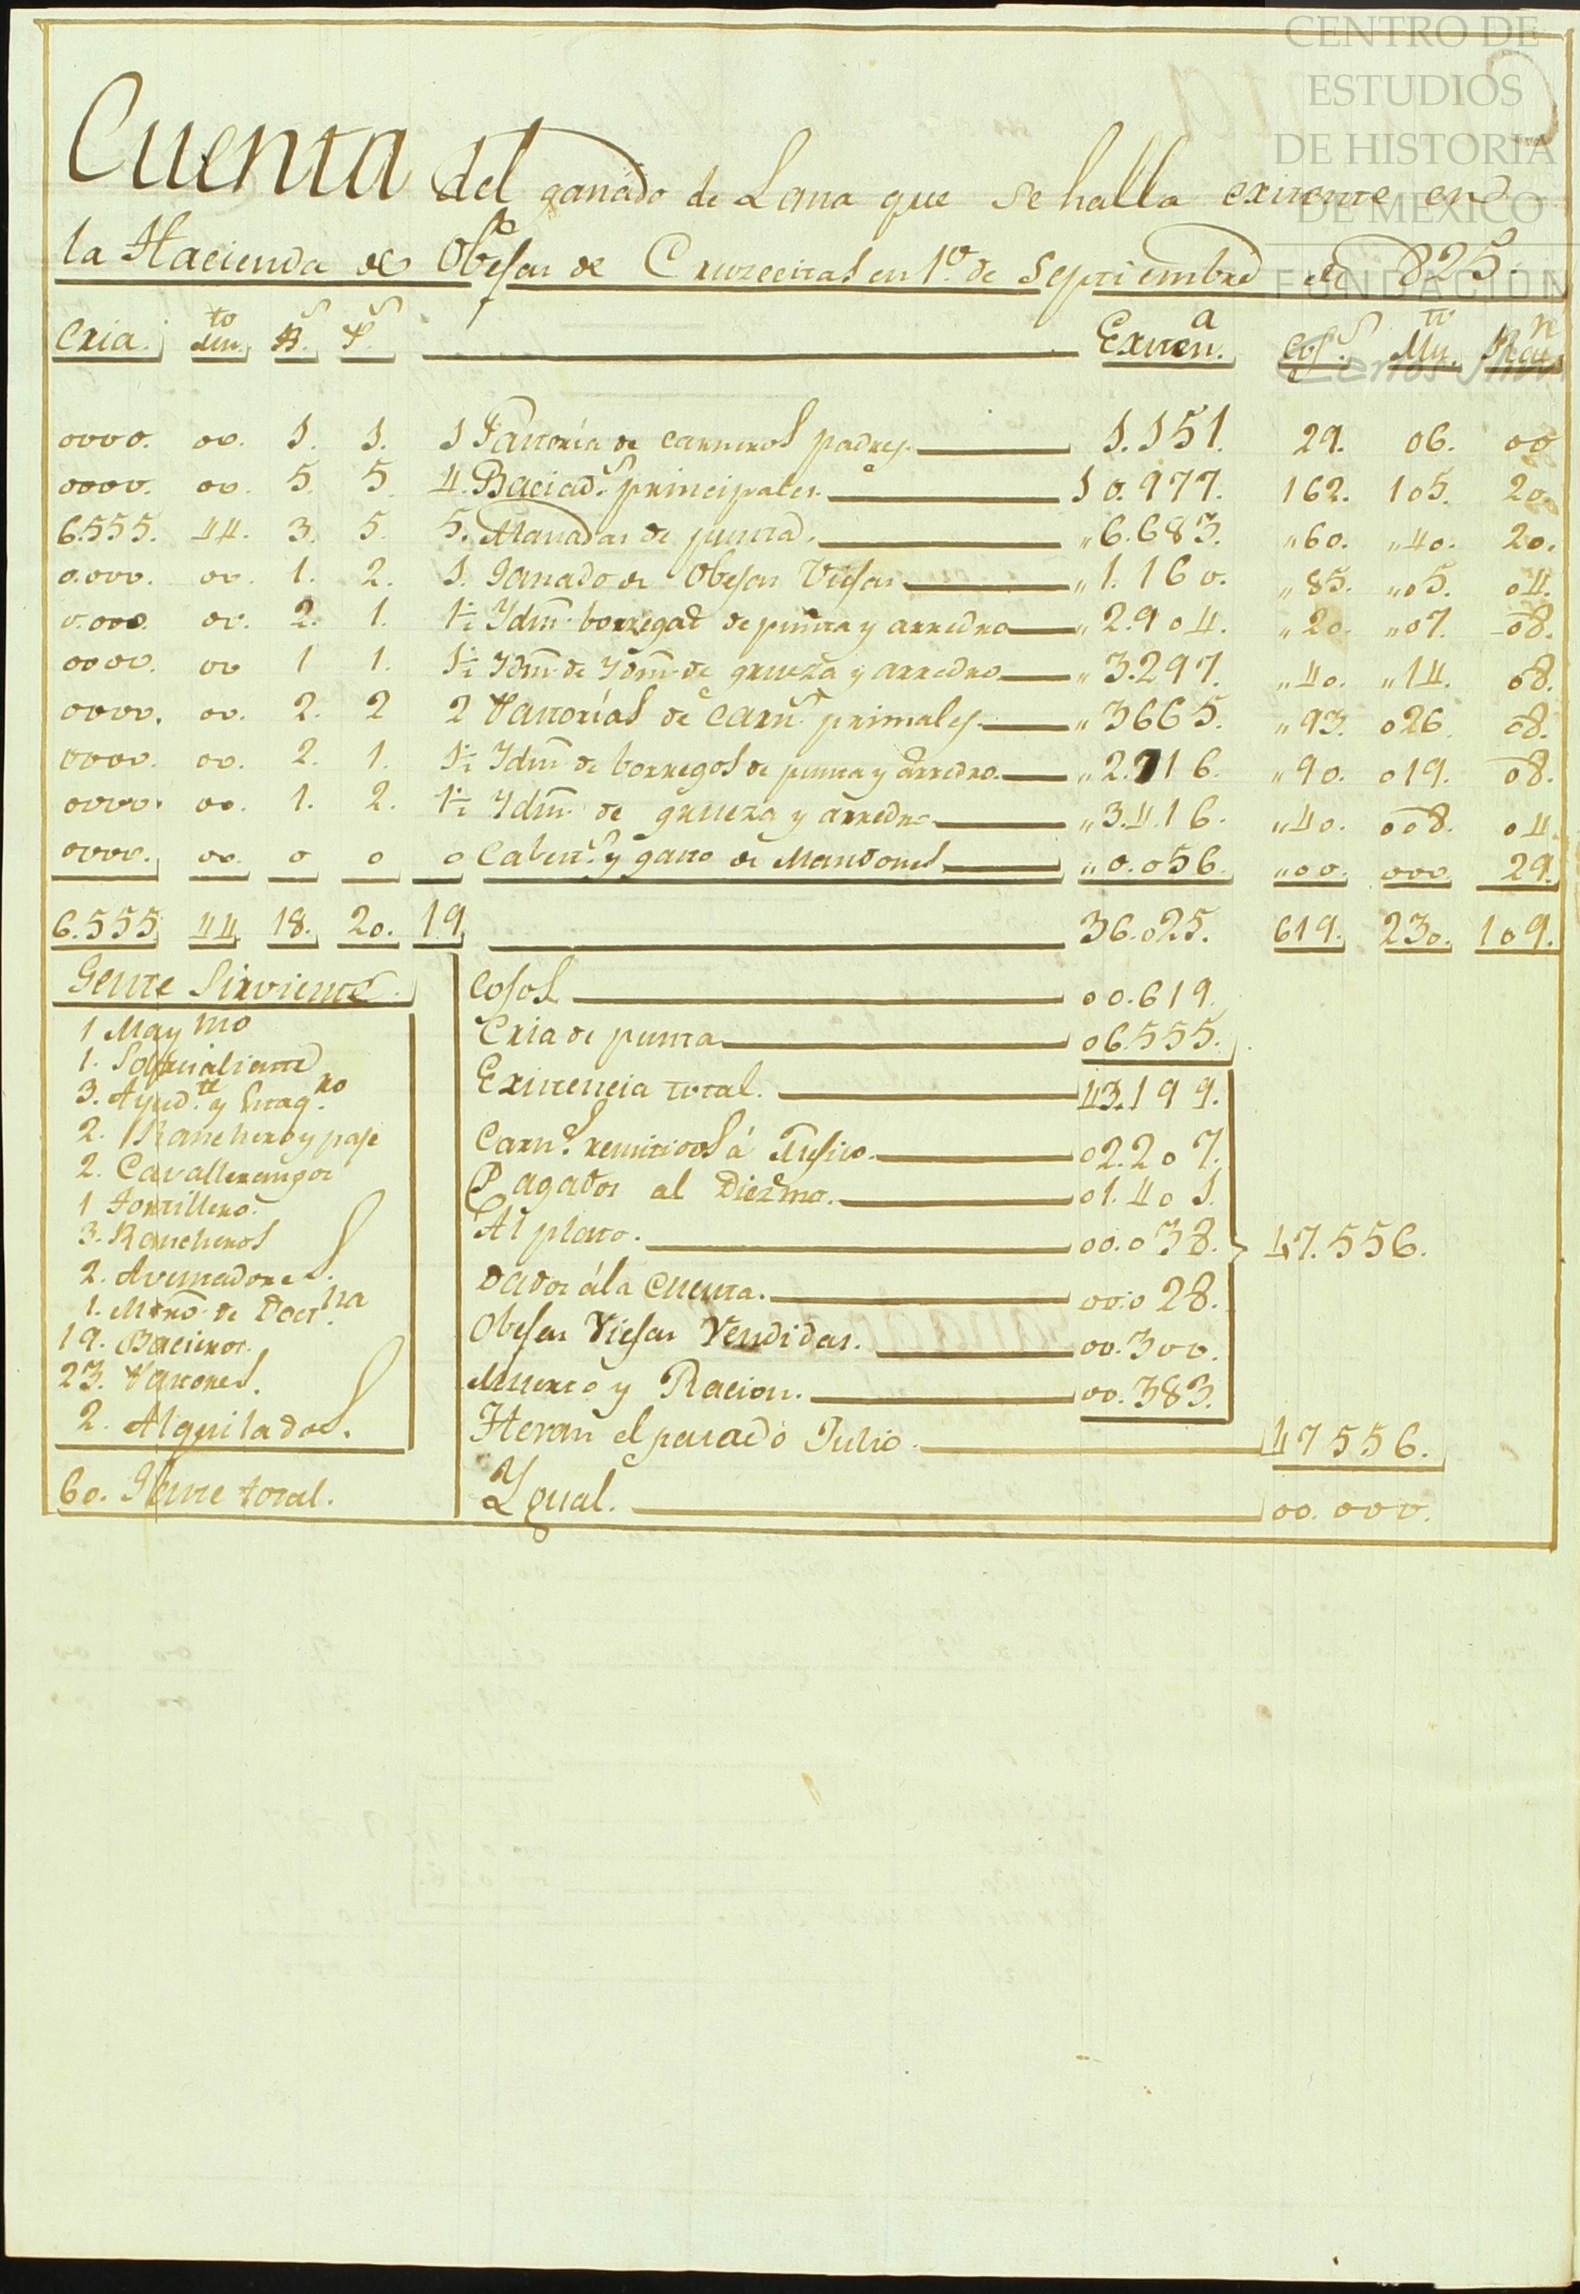 CENTRO DE
ESTUDIOS
DE HISTORIA
DE MEXICO
FUNDACIÓN
Cuenta del ganado de Lana que se halla existente en
la Hacienda de Obejas de Cruzecitas en 1.º de Septiembre de 825.
Cria. Aum.to B.s P.s Existen.a Cos.s Mu.tt Racn.
0000. 00. 1. 1. 1 Pastoría de carneros padres. 1.151. 29. 06. 00
0000. 00. 5. 5. 4. Baciad.s principales. 10.977. 162. 105. 20.
6.555. 44. 3. 5. 5. Manadas de punta. „6.683. „60. „40. 20.
0.000. 00. 1. 2. 1. Ganado de Obejas Viejas „1.160. „85. „05. 04.
0.000. 00. 2. 1. 1½ Ydm. borregas de punta y arredro „2.904. „20. „07. 08.
0000. 00 1 1. 1½ Ydm. de Ydm. de grueza y arredro „3.297. „40. „14. 08.
0000. 00. 2. 2 2 Pastorías de carn.s primales. „3665. „93. 026. 08.
0000. 00. 2. 1. 1½ Ydm de borregos de punta y arredro. „2.716. „90. 019. 08.
0000. 00. 1. 2. 1½ Ydm. de grueza y arredro „3.416. „40. 008. 04.
0000. 00. 0 0 0 Cabest.s y gasto de Mandones „0.056. „00. 000. 29.
6.555 44. 18. 20. 19 36.025. 619. 230. 109.
Gente Sirviente.
1 May mo
1. Sobresaliente
3. Ayud.tt y
2. Ranchero y paje
2. Cavallerangos
1 Tortillero.
3. Rancheros
2. Aventadores.
1. Mtro. de Doct.na
19. Bacieros.
23. Pastores.
2. Alquilados.
60. Gente total.
Cosos 00.619.
Cria de punta 06.555.
Existencia total. 43.199.
Carn.s remitidos á 02.207.
Pagados al Diezmo. 01.401.
Al plato. 00.038. 47.556.
Dados á la Cuenta. 00.028.
Obejas Viejas Vendidas. 00.300.
Muerto y Racion. 00.383.
Heran el pasado Julio. 47556.
Ygual. 00.000.